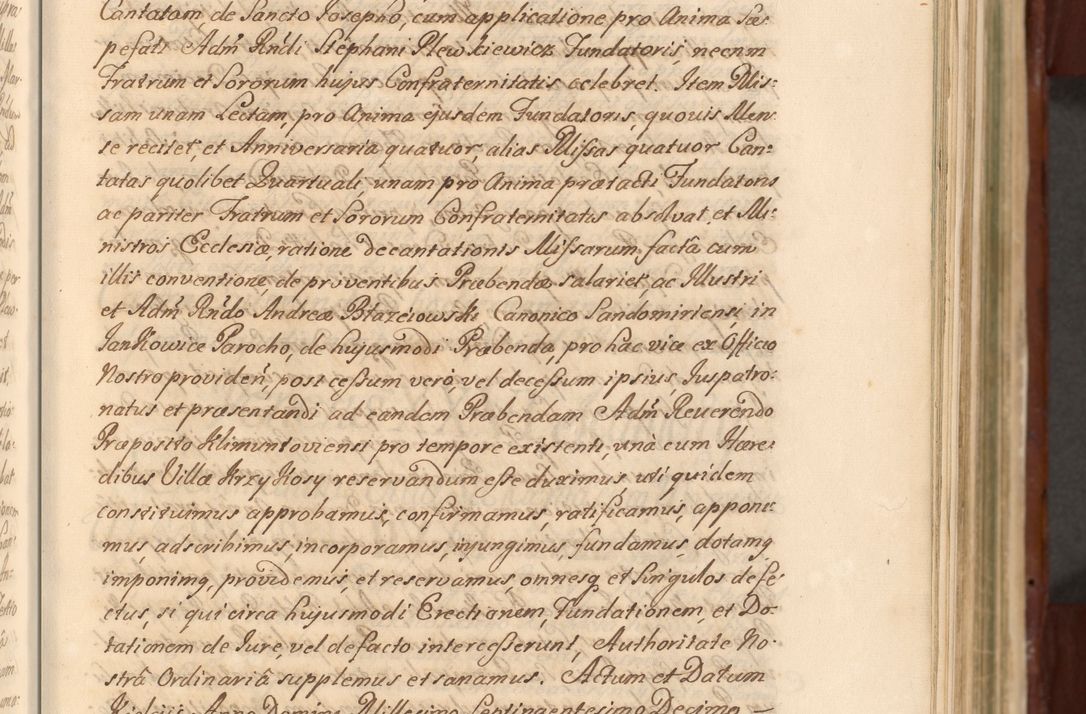 Cantatam, de Sancto Josepho, cum applicatione pro Anima Sæ:
pefati Adm̃ Rñdi Stephani Plewkiewicz Fundatoris, necnon
Fratrum et Sororum hujus Confraternitatis celebret. Item Mis:
sam unam Lectam, pro Anima ejusdem Fundatoris, quovis Men:
se recitet, et Anniversaria quatuor, alias Missas quatuor Can:
tatas quolibet Quartuali, unam pro Anima prætacti Fundatoris
ac pariter Fratrum et Sororum Confraternitatis absolvat, et Mi:
nistros Ecclesiæ, ratione decantationis Missarum, factâ cum
illis conventione, de proventibus Præbendæ salariet, ac Illustri
et Adm̃ Rñdo Andreæ Błazeiowski Canonico Sandomiriensi, in
Jankowice Parocho, de hujusmodi Præbenda, pro hac vice ex Officio
Nostro provideñ, post cessum verò, vel decessum ipsius, Juspatro:
natus et præsentandi ad eandem Præbendam Adm̃ Reverendo
Præposito Klimuntoviensi pro tempore existenti, unà cum Hære:
dibus Villæ Krzykosy reservandum esse duximus uti quidem
constituimus approbamus, confirmamus, ratificamus, apponi:
mus, adscribimus, incorporamus, injungimus, fundamus, dotamq
imponimq, providemus, et reservamus, omnesq et singulos defe:
ctus, si qui circa hujusmodi Erectionem, Fundationem, et Do:
tationem de Jure, vel de facto intercesserunt, Authoritate No:
strâ Ordinariâ supplemus et sanamus. Actum et Datum
Kielciis Anno Domini Millesimo Septingentesimo Decimo —